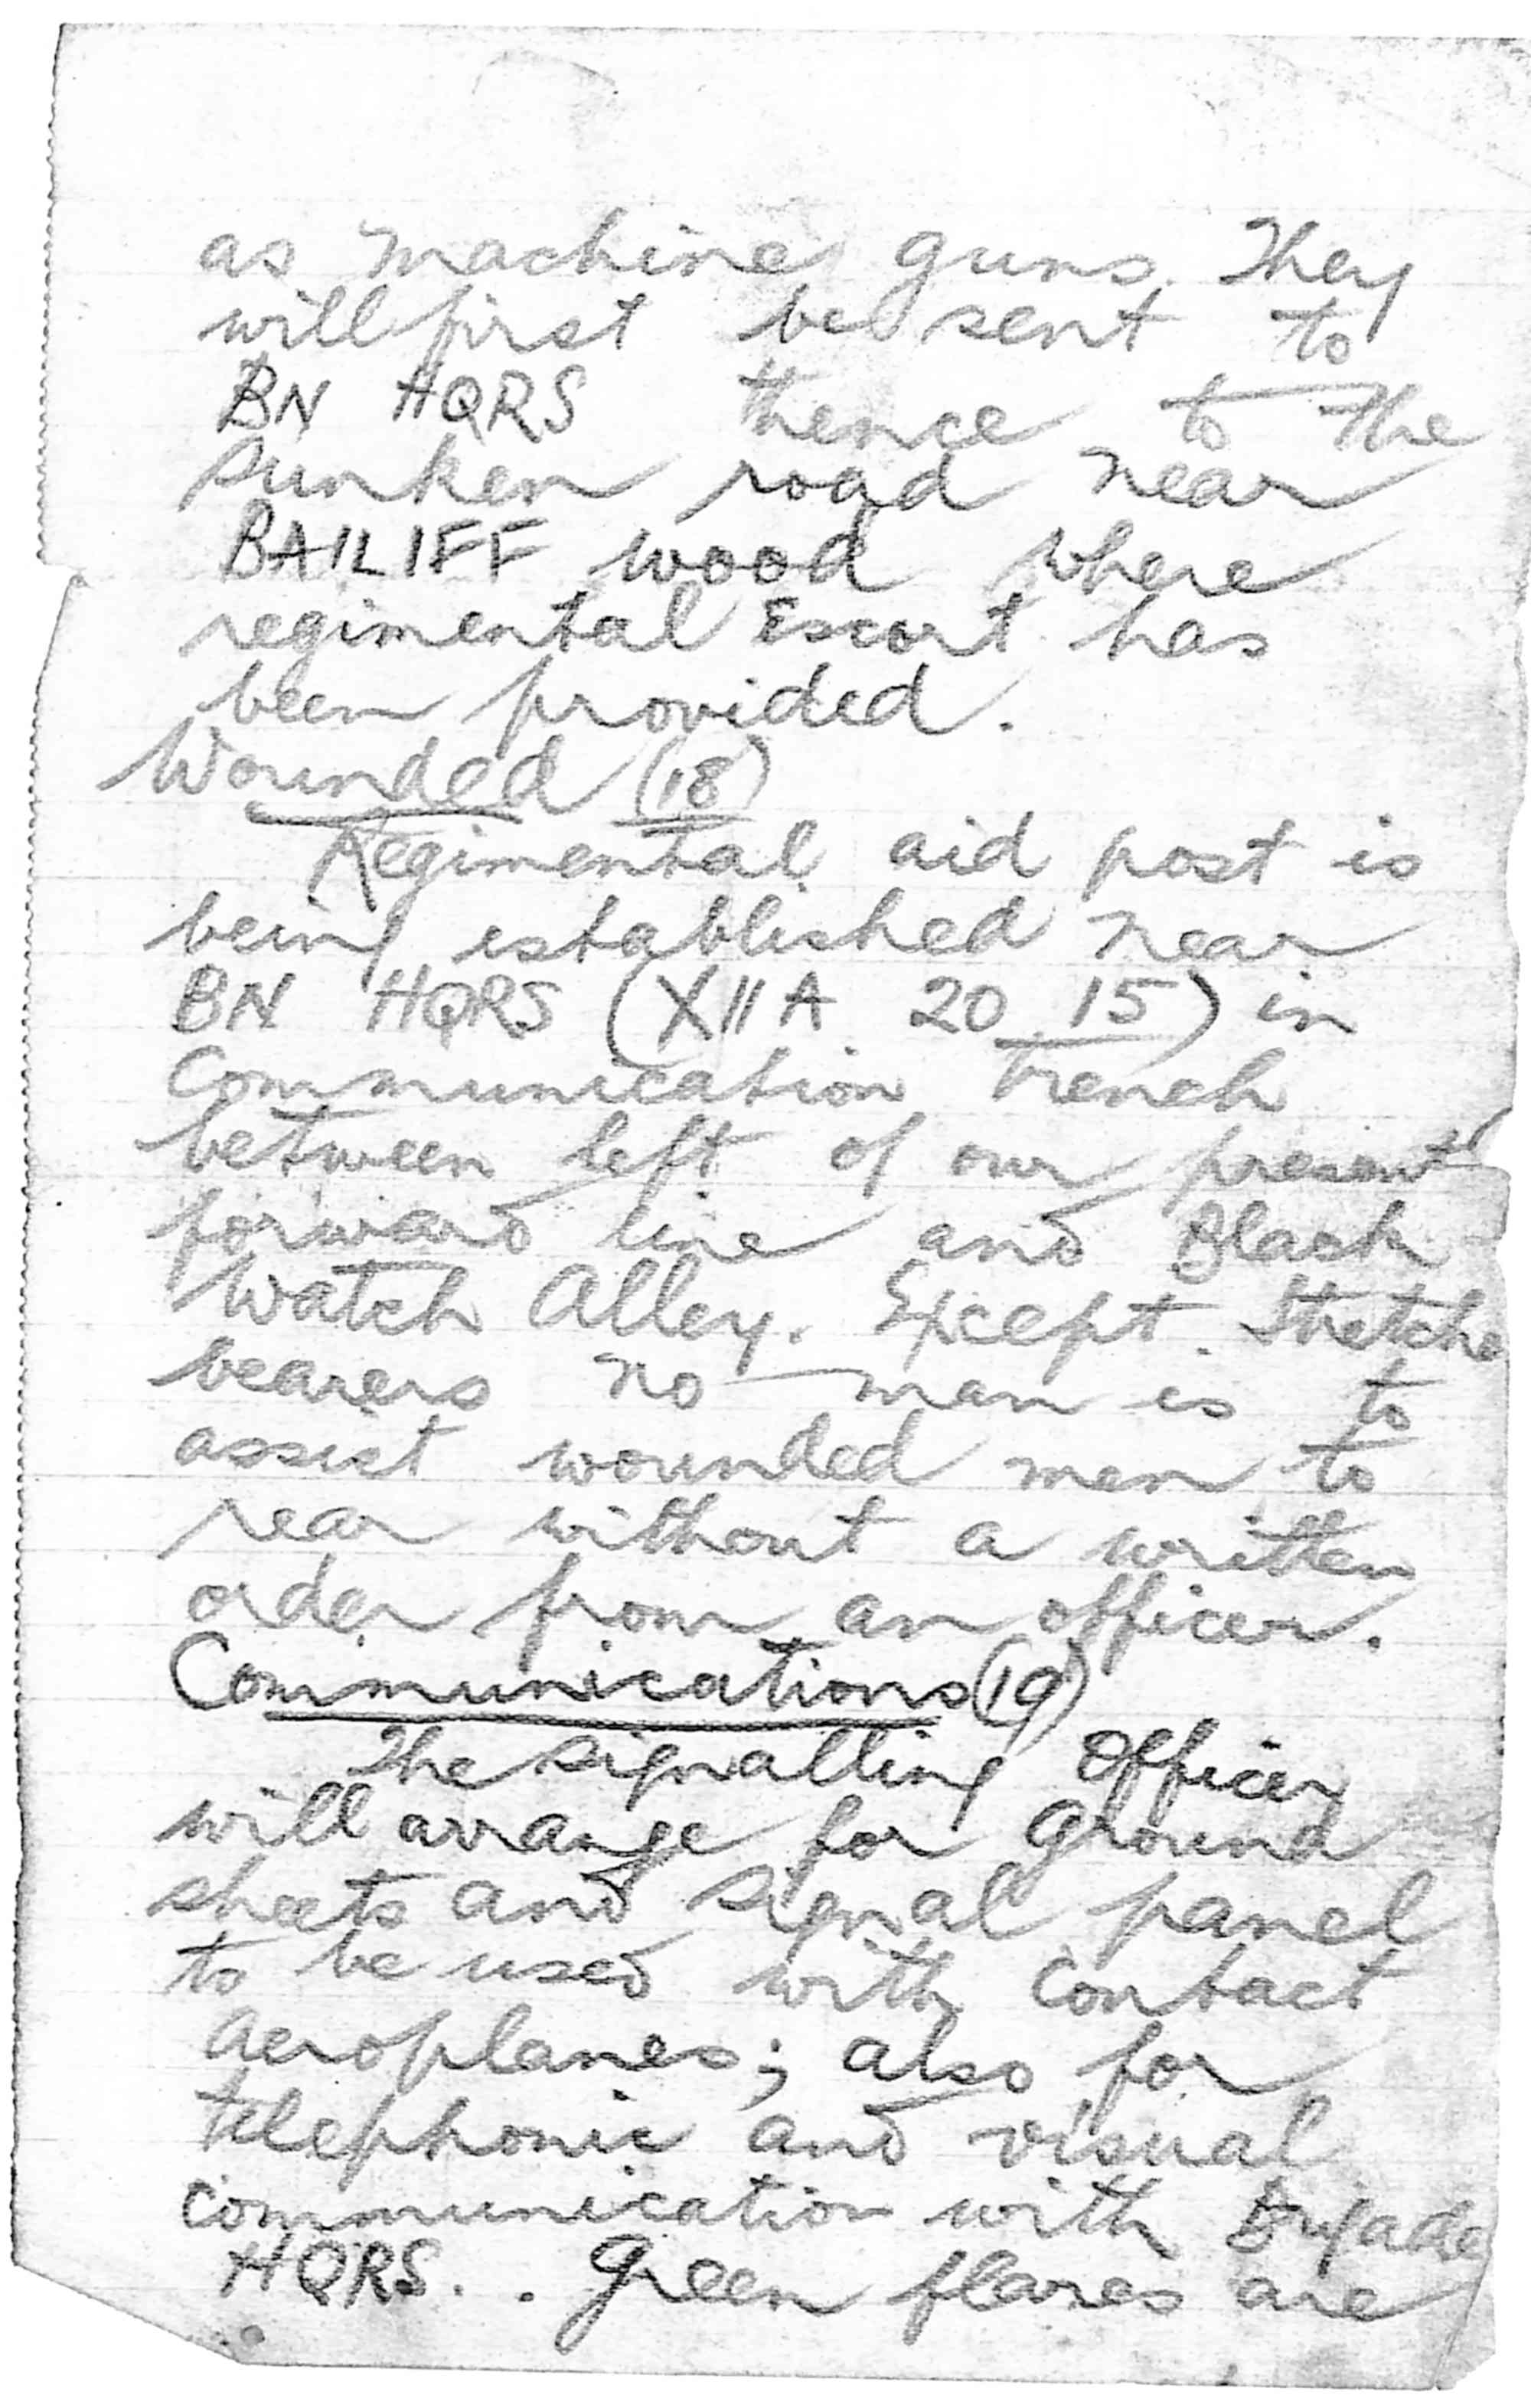 as machine guns. They
will first be sent to
BN HQRS thence to the
sunken road near
BAILIFF wood where
regimental Escort has
been provided.
Wounded (18)
Regimental aid post is
being established near
BN HQRS (XIIA 20 15) in
Communication trench
between left of our present
forward line and Black
Watch Alley. Except Stretche
bearers no man is to
assist wounded men to
rear without a written
order from an officer.
Communications (19)
The Signalling Officer
will arrange for Ground
sheets and Signal panel
to be used with Contact
Aeroplanes; also for
telephonic and visual
communication with Brigade
HQRS. . Green flares are